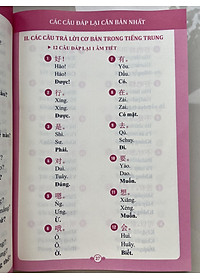 CÁC CÂU ĐÁP LẠI CĂN BẢN NHẤT
II. CÁC CÂU TRẢ LỜI CƠ BẢN TRONG TIẾNG TRUNG
12 CÂU ĐÁP LẠI 1 ÂM TIẾT
1 好!
Hǎo!
Hảo!
Được!
2 行。
Xíng.
Xíng.
Được.
3 是。
Shì.
Sư.
Phải.
4 对。
Duì.
Tuây.
Đúng.
5 嗯。
Ng.
Ưng.
Ừ.
6 哦。
Ò.
Ờ.
7 有。
Yǒu.
Dẩu.
Có.
8 在。
Zài.
Có mặt.
9 去。
Qù.
Đi.
10 要。
Yào.
Dao.
Muốn.
11 想。
Xiǎng.
Muốn.
12 会。
Huì.
Huây.
Biết.